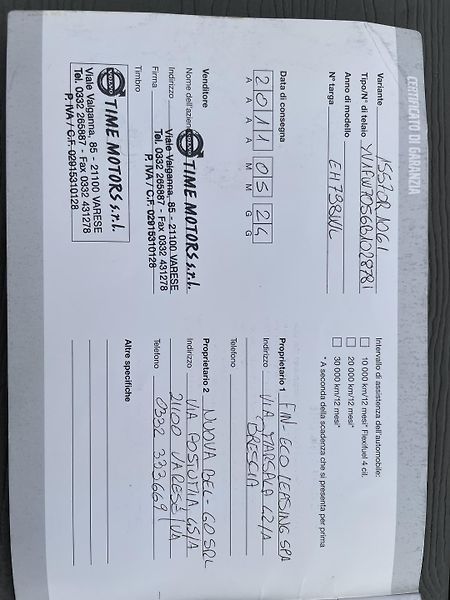 CERTIFICATO DI GARANZIA
Variante
Tipo/N° di telaio
Anno di modello
N° targa EH738WL
Data di consegna
2 0 1 1 0 5 2 4
A A A A M M G G
Venditore
Nome dell'azienda
Indirizzo
Firma
Timbro
TIME MOTORS s.r.l.
Viale Valganna, 85 - 21100 VARESE
Tel. 0332 265887 - Fax 0332 431278
P. IVA / C.F. 02915310128
TIME MOTORS s.r.l.
Viale Valganna, 85 - 21100 VARESE
Tel. 0332 265887 - Fax 0332 431278
P. IVA / C.F. 02915310128
Intervallo di assistenza dell'automobile:
10 000 km/12 mesi* Flexifuel 4 cil.
20 000 km/12 mesi*
30 000 km/12 mesi*
* A seconda della scadenza che si presenta per prima
Proprietario 1 FIN-ECO LEASING SPA
Indirizzo VIA MARSALA 42/A
BRESCIA
Telefono
Proprietario 2 NUOVA BEL-GO SRL
Indirizzo VIA POSTUMIA 65/A
21100 VARESE VA
Telefono 0332 333669
Altre specifiche